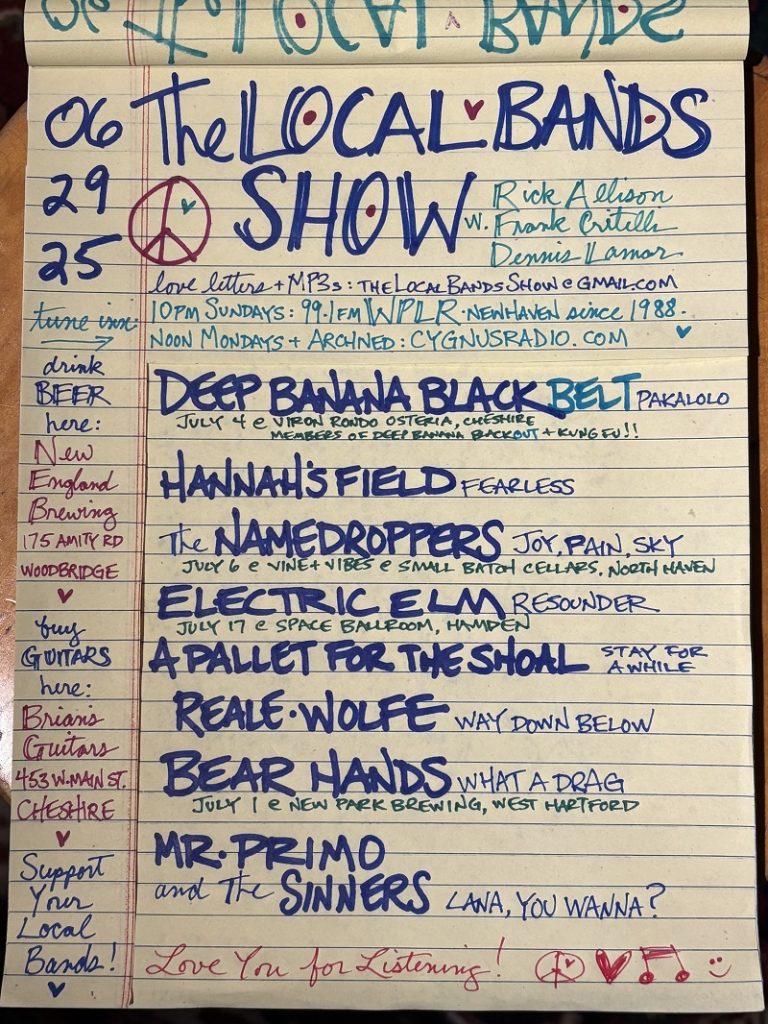 The LOCAL BANDS
SHOW
06
29
25
w. Rick Allison
Frank Critelli
Dennis Lamar
love letters + MP3s: THELOCALBANDSSHOW@GMAIL.COM
tune inn:
10PM SUNDAYS: 99.1FM WPLR • NEWHAVEN since 1988.
NOON MONDAYS + ARCHIVED: CYGNUSRADIO.COM
drink
BEER
here:
New
England
Brewing
175 AMITY RD
WOODBRIDGE
buy
GUITARS
here:
Brian's
Guitars
453 W. MAIN ST.
CHESHIRE
Support
Your
Local
Bands!
DEEP BANANA BLACK BELT PAKALOLO
JULY 4 @ VIRON RONDO OSTERIA, CHESHIRE
MEMBERS OF DEEP BANANA BLACKOUT + KUNG FU!!
HANNAH'S FIELD FEARLESS
The NAMEDROPPERS JOY, PAIN, SKY
JULY 6 @ VINE + VIBES @ SMALL BATCH CELLARS, NORTH HAVEN
ELECTRIC ELM RESOUNDER
JULY 17 @ SPACE BALLROOM, HAMDEN
A PALLET FOR THE SHOAL STAY FOR
A WHILE
REALE • WOLFE WAY DOWN BELOW
BEAR HANDS WHAT A DRAG
JULY 1 @ NEW PARK BREWING, WEST HARTFORD
MR. PRIMO
and The SINNERS LANA, YOU WANNA?
Love You for Listening!